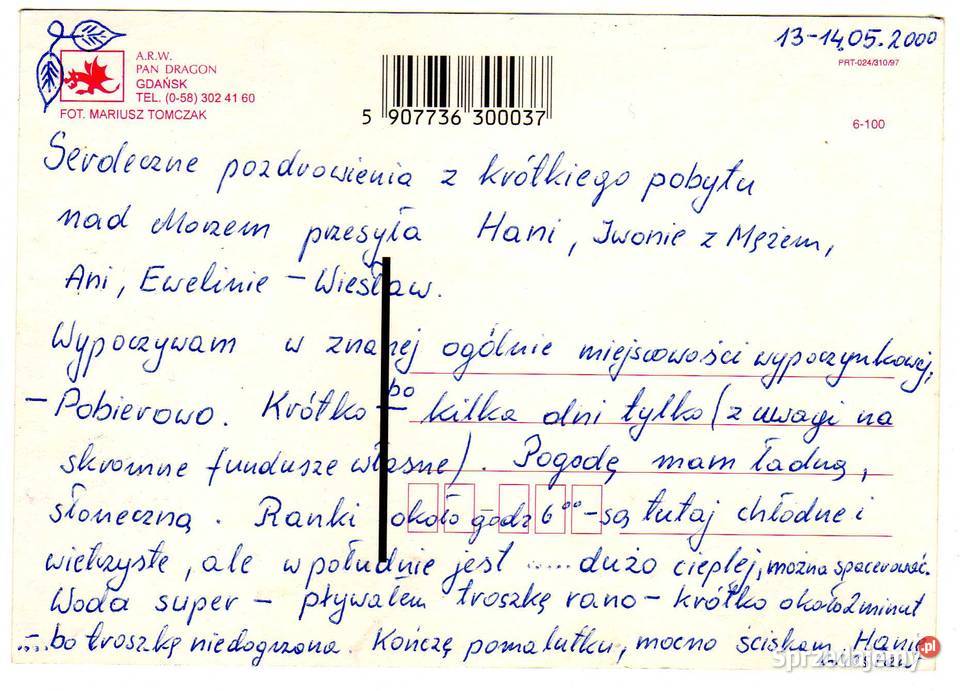 13-14.05.2000
A.R.W.
PAN DRAGON
GDAŃSK
TEL. (0-58) 302 41 60
FOT. MARIUSZ TOMCZAK
PRT-024/310/97
5 907736 300037
6-100
Serdeczne pozdrowienia z krótkiego pobytu
nad Morzem przesyła Hani, Iwonie z Mężem,
Ani, Ewelinie - Wiesław.
Wypoczywam w znanej ogólnie miejscowości wypoczynkowej,
- Pobierowo. Krótko - bo kilka dni tylko (z uwagi na
skromne fundusze własne). Pogodę mam ładną,
słoneczną. Ranki około godz 6⁰⁰ - są tutaj chłodne i
wietrzyste, ale w południe jest ..... dużo cieplej, można spacerować.
Woda super - pływałem troszkę rano - krótko około 2 minut
..... bo troszkę niedogrzona. Kończę pomalutku, mocno ściskam, Hanię
Sprzedajemy.pl